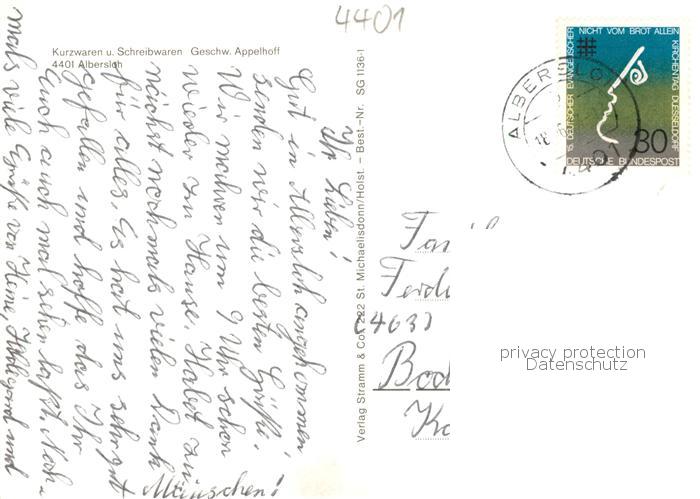 4401
Kurzwaren u. Schreibwaren Geschw. Appelhoff
4401 Albersloh
Ihr Lieben!
Gut in Albersloh angekommen
senden wir die besten Grüße.
Wir wahren um 9 Uhr schon
wieder zu Hause. Habet zu
nächst nochmals vielen Dank
für alles. Es hat uns sehr gut
gefallen und hoffe das Ihr
Euch auch mal sehen laßt. Noch-
mals viele Grüße von Heine, und
Mäuschen!
Verlag Stramm & Co., 2222 St. Michaelisdonn/Holst. – Best.-Nr. SG 1136-1
15. DEUTSCHER EVANGELISCHER
NICHT VOM BROT ALLEIN
KIRCHENTAG DUESSELDORF
30
DEUTSCHE BUNDESPOST
ALBERSLO
4401
Fam
Ferdi
(463)
Boc
privacy protection
Datenschutz